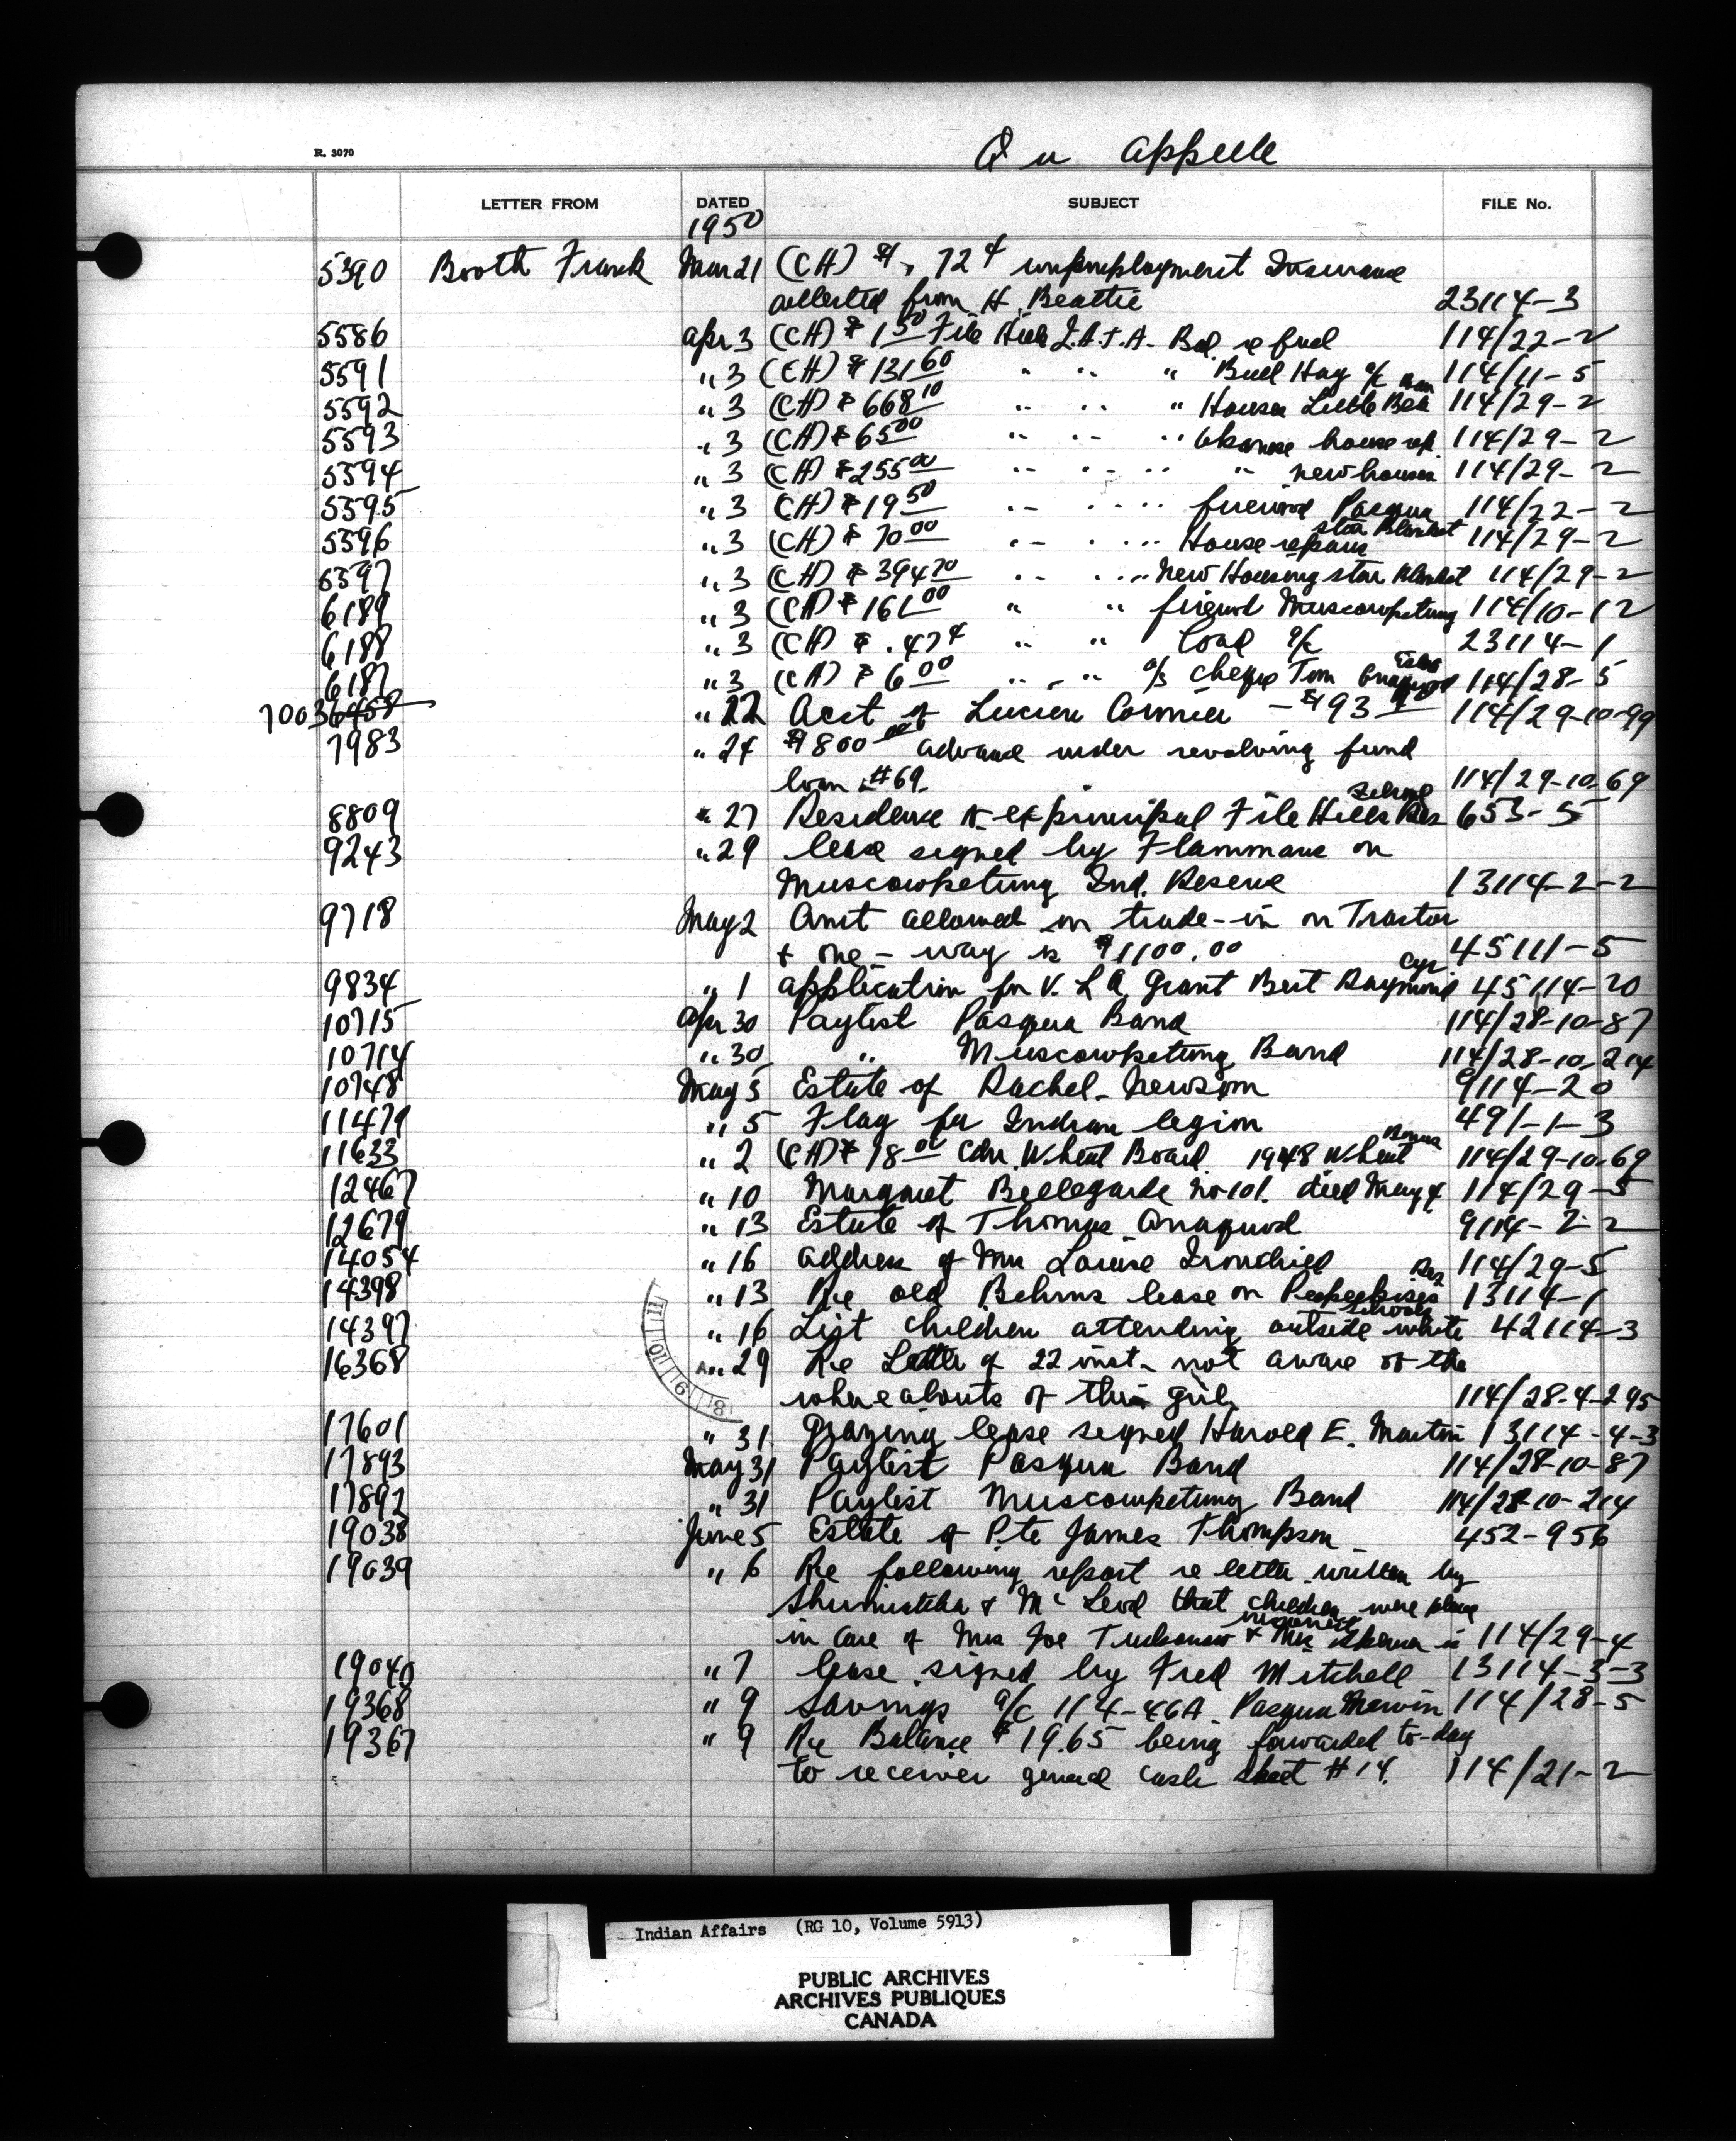 R. 3070
Qu Appelle
LETTER FROM DATED SUBJECT FILE No.
1950
5390 Booth Frank Mar 21 (CH) $ . 72 ¢ unemployment Insurance
collected from H. Beattie 23114-3
5586 Apr 3 (CH) $ 1 50 File Hills I.A.T.A. Bal. re fuel 114/22-2
5591 " 3 (CH) $ 131 60 " " " Hay a/c 114/11-5
5592 " 3 (CH) $ 668 10 " " " Houses Little Black Bear 114/29-2
5593 " 3 (CH) $ 65 00 " " " Okanese house rep. 114/29-2
5594 " 3 (CH) $ 255 00 " " " " new houses 114/29-2
5595 " 3 (CH) $ 19 50 " " " firewood Pasqua 114/22-2
5596 " 3 (CH) $ 70 00 " " " House repairs Star Blanket 114/29-2
5597 " 3 (CH) $ 394 70 " " " New Housing Star Blanket 114/29-2
6189 " 3 (CH) $ 161 00 " " firewood Muscowpetung 114/10-12
6188 " 3 (CH) $ .47 ¢ " " Coal a/c 23114-1
6187 " 3 (CH) $ 6 00 " " a/s cheque Tom Anaquod 114/28-5
7003 6458 " 22 Acct of Lucien Cormier - $ 93 114/29-10-99
7983 " 24 $ 9800 00 advance under revolving fund
loan #69. 114/29-10-69
8809 " 27 Residence for ex principal File Hills Res School 653-5
9243 " 29 lease signed by Flammans on
Muscowpetung Ind. Reserve 13114-2-2
9718 May 2 Amt allowed on trade-in on Tractor
+ one-way is $1100.00 45111-5
9834 " 1 application for V.L.A. Grant Bert Raymond Cyr 45114-20
10715 Apr 30 Paylist Pasqua Band 114/28-10-87
10714 " 30 " Muscowpetung Band 114/28-10-214
10748 May 5 Estate of Rachel Newsom 9114-20
11479 " 5 Flag for Indian legion 491-1-3
11633 " 2 (CH) $ 18 00 Cdn. Wheat Board 1948 Wheat Bonus 114/29-10-69
12467 " 10 Margaret Bellegarde No 101. died May 4 114/29-5
12679 " 13 Estate of Thomas Anaquod 9114-2-2
14054 " 16 address of Mrs Louise Ironchild 114/29-5
14398 " 13 Re old Behrns lease on Peepeekisis Res 13114-1
14397 " 16 List children attending outside white schools 42114-3
16368 " 29 Re Letter of 22 inst. not aware of the
whereabouts of this girl 114/28-4-295
17601 " 31 Grazing lease signed Harold E. Martin 13114-4-3
17893 May 31 Paylist Pasqua Band 114/28-10-87
17892 " 31 Paylist Muscowpetung Band 114/28-10-214
19038 June 5 Estate of Pte James Thompson 452-956
19039 " 6 Re following report re letter written by
+ McLeod that children were place
in care of Mrs Joe + Mrs 114/29-4
19040 " 7 lease signed by Fred Mitchell 13114-3-3
19368 " 9 Savings a/c 114-46A Pasqua Merwin 114/28-5
19367 " 9 Re Balance $ 19.65 being forwarded to-day
to receiver general cash sheet #14. 114/21-2
11 10 9 8
Indian Affairs (RG 10, Volume 5913)
PUBLIC ARCHIVES
ARCHIVES PUBLIQUES
CANADA